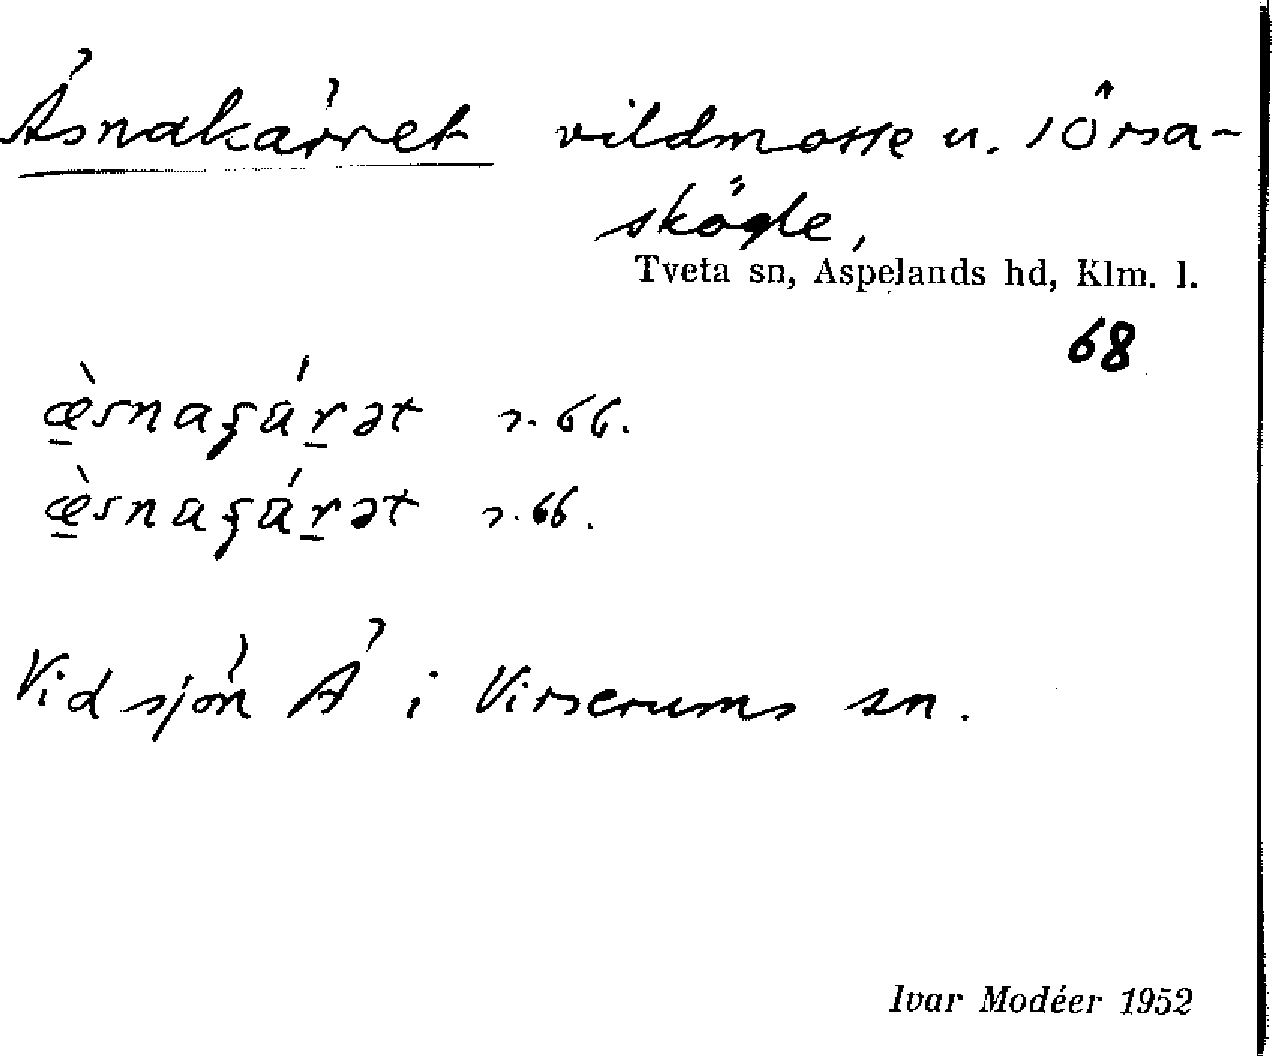 Äsnakärret vildmosse u. 1 Örsa-
skögle,
Tveta sn, Aspelands hd, Klm. l.
68
æ̠̀snaʂá̠rət s. 66.
æ̠̀snaʂá̠rət s. 66.
Vid sjön Ä i Virserums sn.
Ivar Modéer 1952